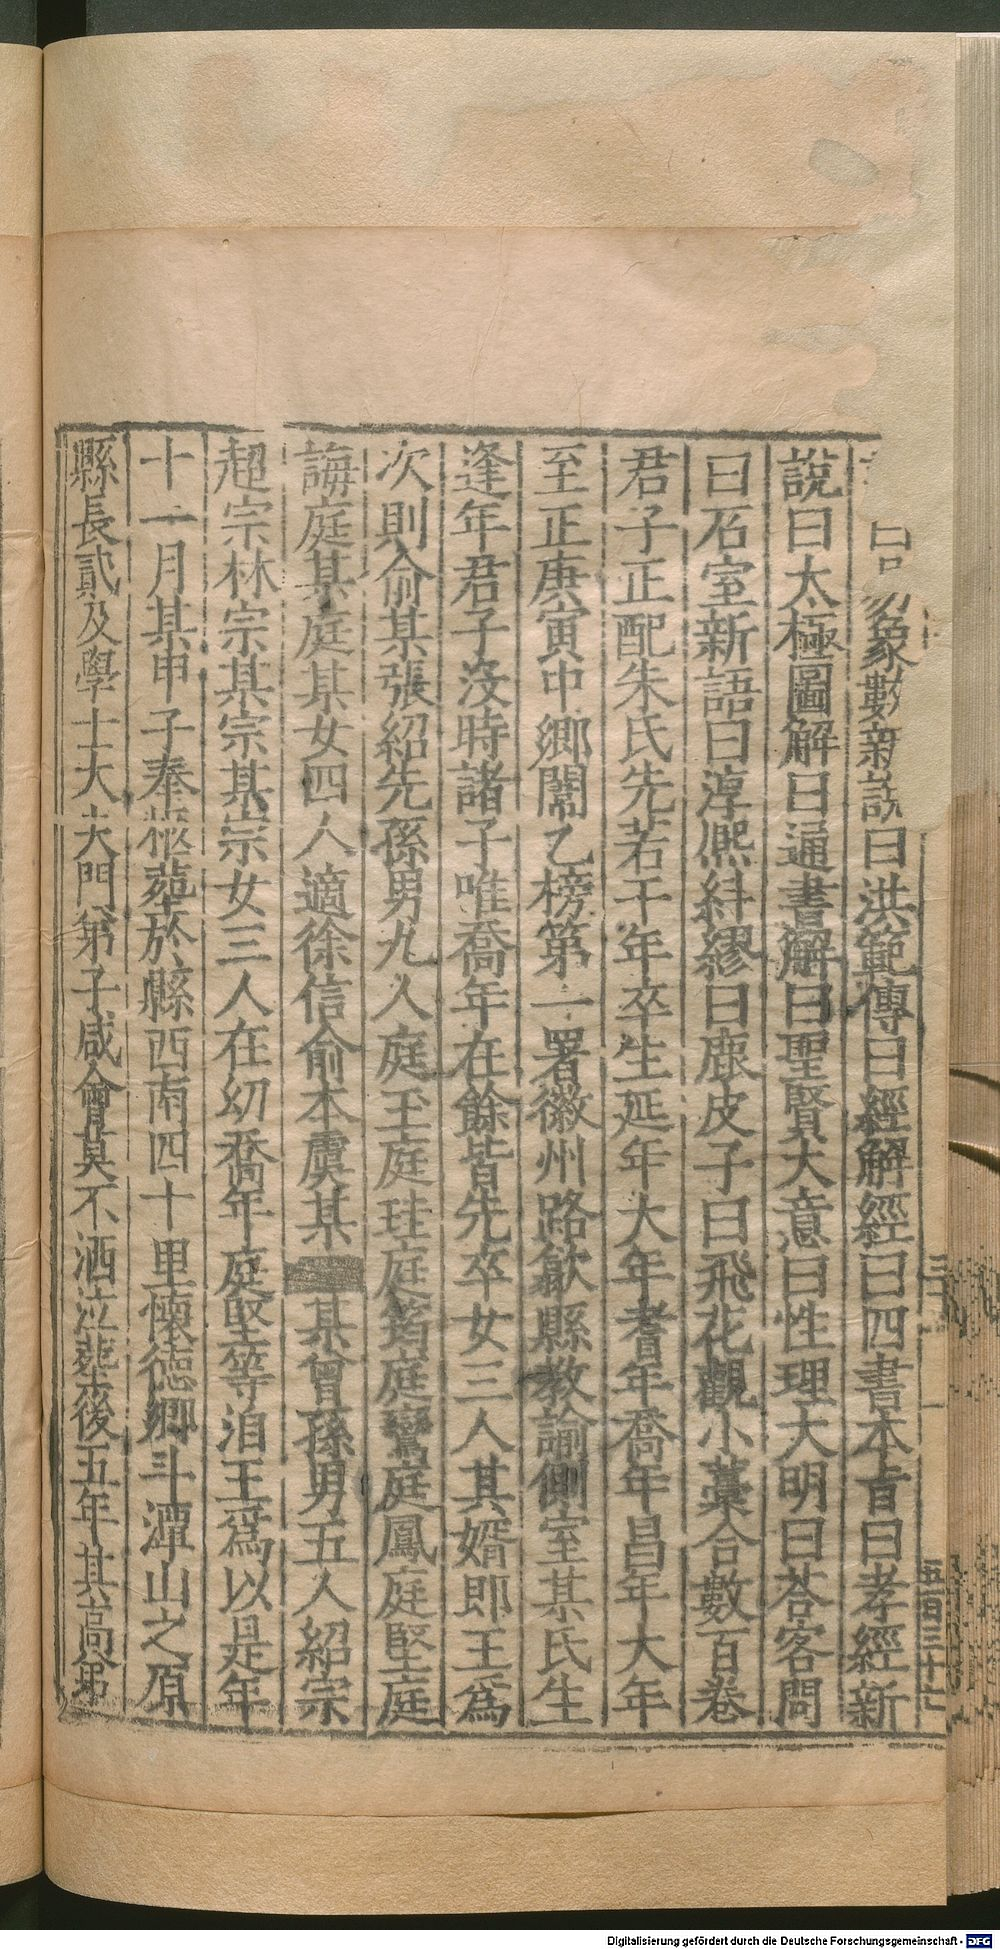 象數新說曰洪範傳曰經解經曰四書本旨曰孝經新
說曰太極圖解曰通書解曰聖賢大意曰性理大明曰荅客問
曰石室新語曰淳熈糾繆曰鹿皮子曰飛花觀小藁合數百卷
君子正配朱氏先若干年卒生延年大年耆年喬年昌年大年
至正庚寅中鄉闈乙榜第一署徽州路歙縣教諭側室某氏生
逢年君子沒時諸子唯喬年在餘皆先卒女三人其婿即王為
次則俞某張紹先孫男九人庭玉庭珪庭筠庭鸞庭鳳庭堅庭
誨庭某庭某女四人適徐信俞本虞某某曾孫男五人紹宗
超宗林宗某宗某宗女三人在幼喬年庭堅等洎王為以是年
十一月某甲子奉柩葬於縣西南四十里懷德鄉斗潭山之原
縣長貳及學士大夫門第子咸會莫不洒泣葬後五年其高弟
五百三十七
Digitalisierung gefördert durch die Deutsche Forschungsgemeinschaft - DFG